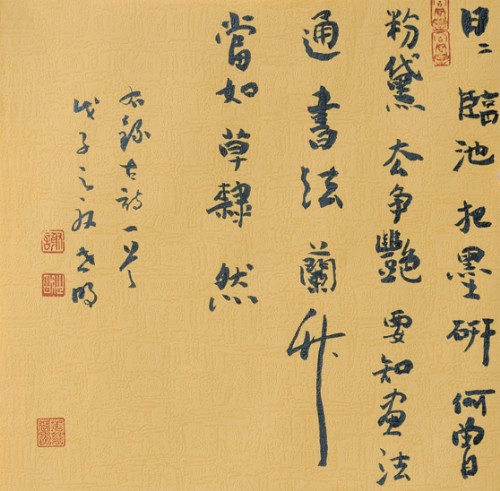 日〻臨池把墨研何曾
粉黛去争艷要知畫法
通書法蘭竹
當如草隸然
右錄古詩一首
戊子之秋